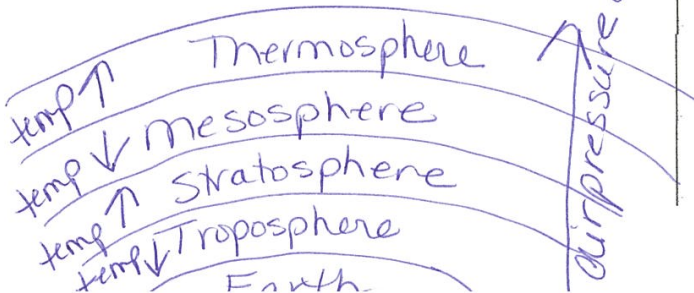 temp ↑ Thermosphere
temp ↓ mesosphere
temp ↑ Stratosphere
temp ↓ Troposphere
Earth
airpressure